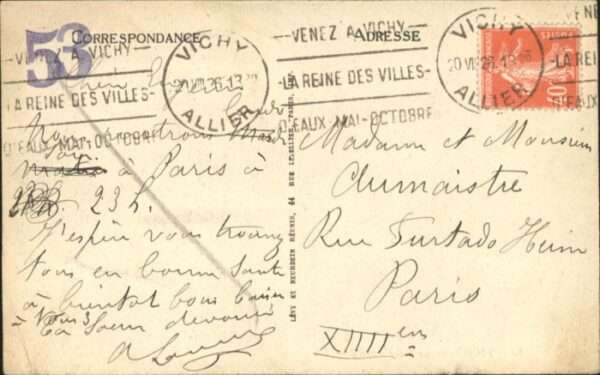 53
CORRESPONDANCE
ADRESSE
VENEZ A VICHY
LA REINE DES VILLES
D'EAUX MAI-OCTOBRE
VICHY
20 VII 26.13
ALLIER
VENEZ A VICHY
LA REINE DES VILLES
D'EAUX MAI-OCTOBRE
VICHY
20 VII 26.13
ALLIER
VENE
LA REI
D'EAUX
Nous rentrons
Soir
à Paris à
23 h.
J'espère vous trouver
tous en bonne santé
à bientôt bons baisers
à Vous 3
Ta Soeur dévouée
LÉVY ET NEURDEIN RÉUNIS, 44 RUE LETELLIER, PARIS
Madame et Monsieur
Dumaistre
Rue Furtado Heim
Paris
XIIII em